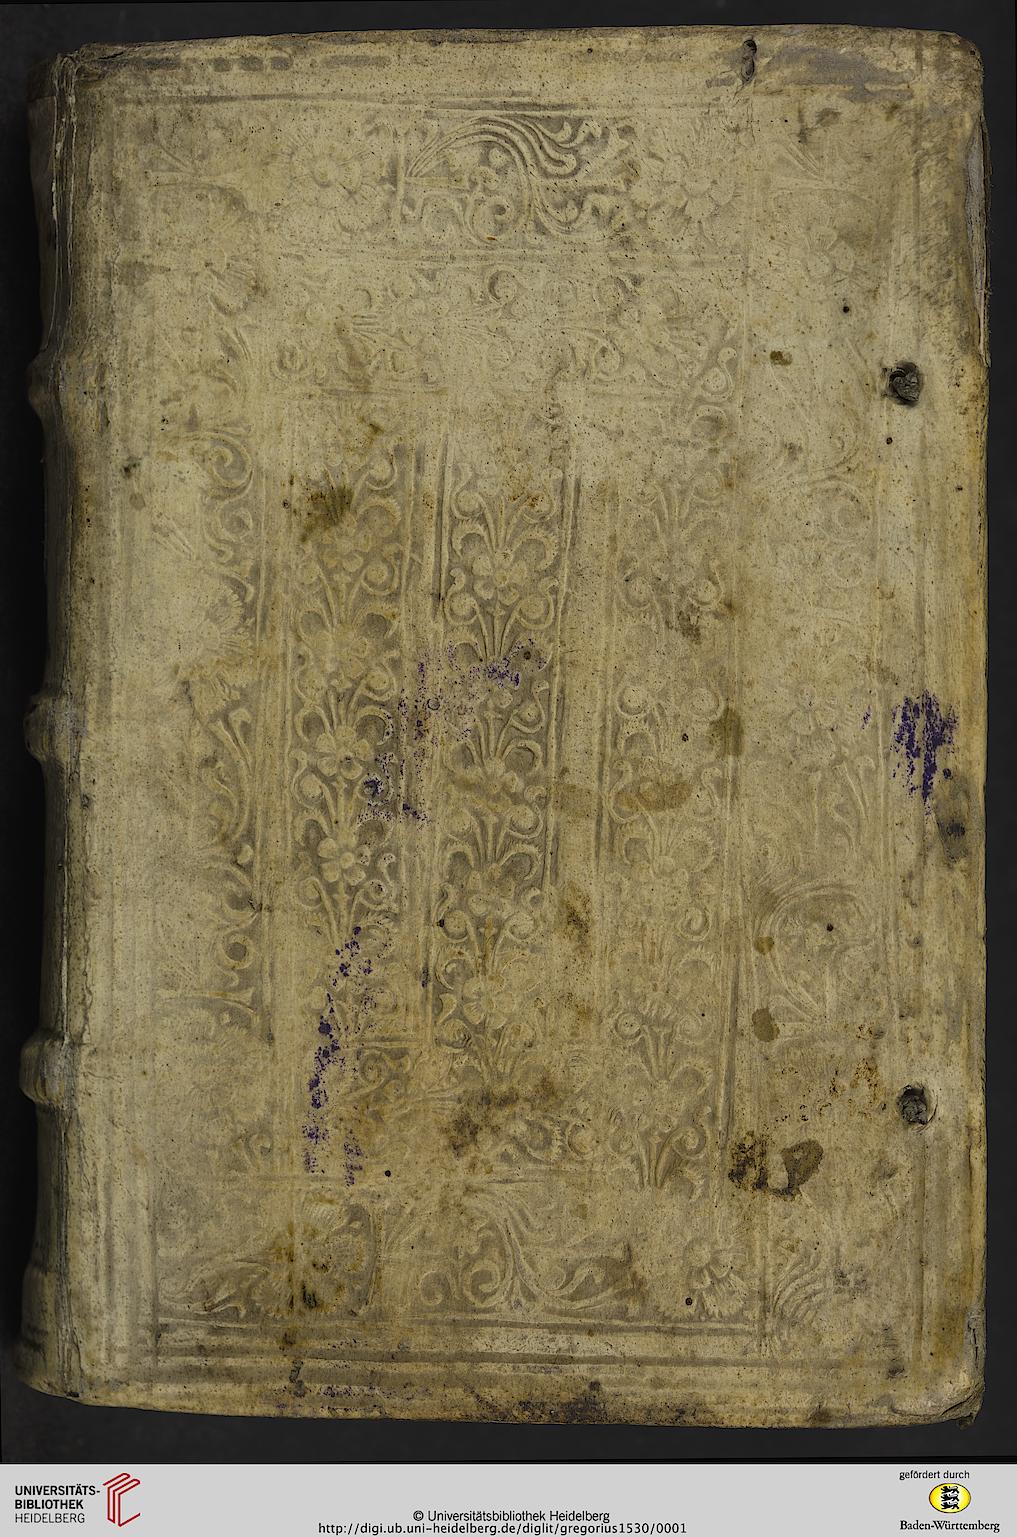 UNIVERSITÄTS-
BIBLIOTHEK
HEIDELBERG
© Universitätsbibliothek Heidelberg
http://digi.ub.uni-heidelberg.de/diglit/gregorius1530/0001
gefördert durch
Baden-Württemberg